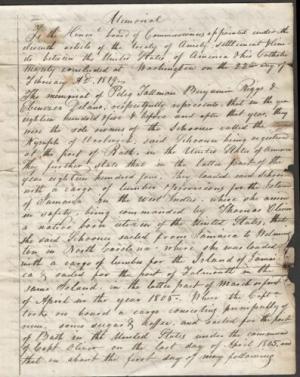 Memorial
To the Honbl board of Commissioners appointed under the
eleventh article of the treaty of Amity, settlement & lim
its between the United States of America & his Catholic
Majesty concluded at Washington on the 22nd day of
February AD. 1819
The memorial of Peleg Tallman Benjamin Riggs &
Ebenezer Delano, respectfully represents, that in the year
eighteen hundred & five & before and after that year, they
were the sole owners of the Schooner called the
Nymph of Scarboro, said Schooner being registered
at the port of Bath, in the United States of America
They further state that in the latter part of the
year eighteen hundred four, they loaded said schooner
with a cargo of lumber & provisions for the Island
of Jamaica in the West Indies, where she arrived
in safety, being commanded by Thomas
a native born citizen of the United States, that
the said Schooner sailed from Jamaica to Wilming
ton in North Carolina, where she was loaded
with a cargo of lumber for the Island of Jamai
ca & sailed for the port of Falmouth in the
same Island, in the latter part of March or first
of April in the year 1805. Where the Capt
took on board a cargo consisting principally of
rum, some sugar & coffee, and sailed for the port
of Bath in the United States under the command
of Capt on the last day of April 1805, and
that on about the first day of May following